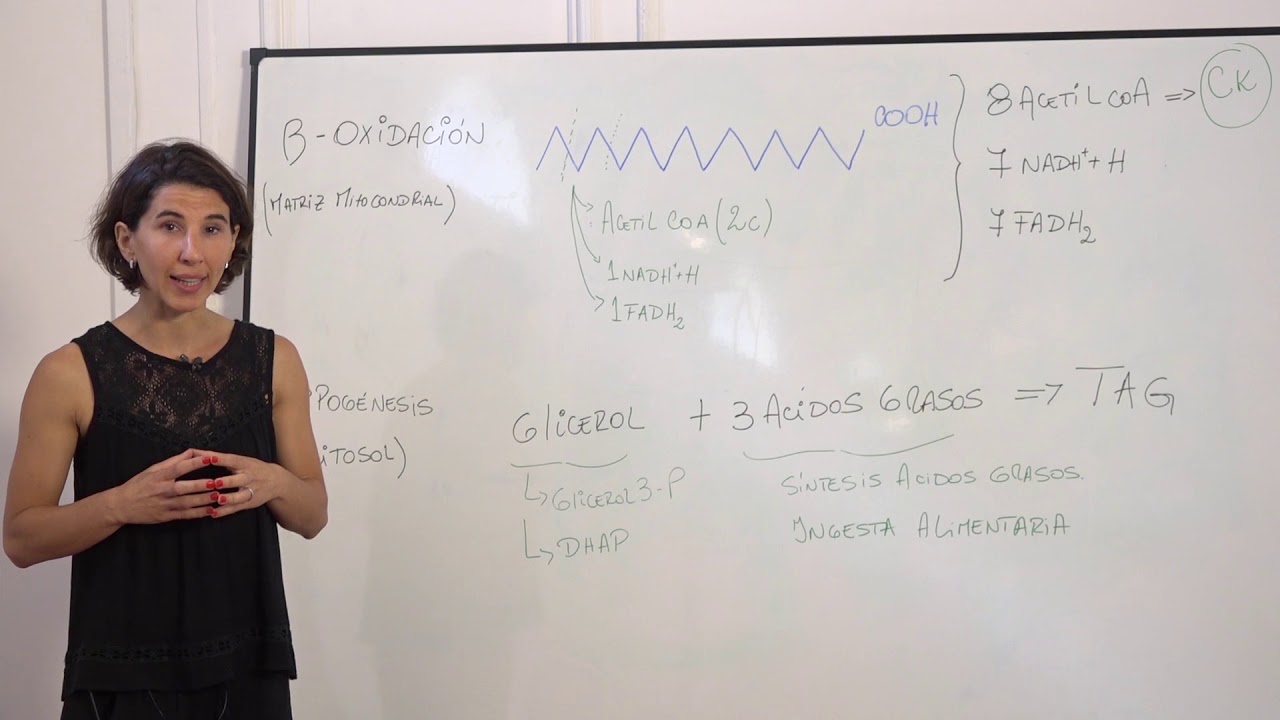 β-OXIDACIÓN
(MATRIZ MITOCONDRIAL)
COOH
ACETIL COA (2C)
1 NADH⁺+H
1 FADH₂
8 ACETIL COA => CK
7 NADH⁺+H
7 FADH₂
POGÉNESIS
ITOSOL)
GLICEROL + 3 ACIDOS GRASOS => TAG
GLICEROL 3-P
DHAP
SÍNTESIS ACIDOS GRASOS.
INGESTA ALIMENTARIA